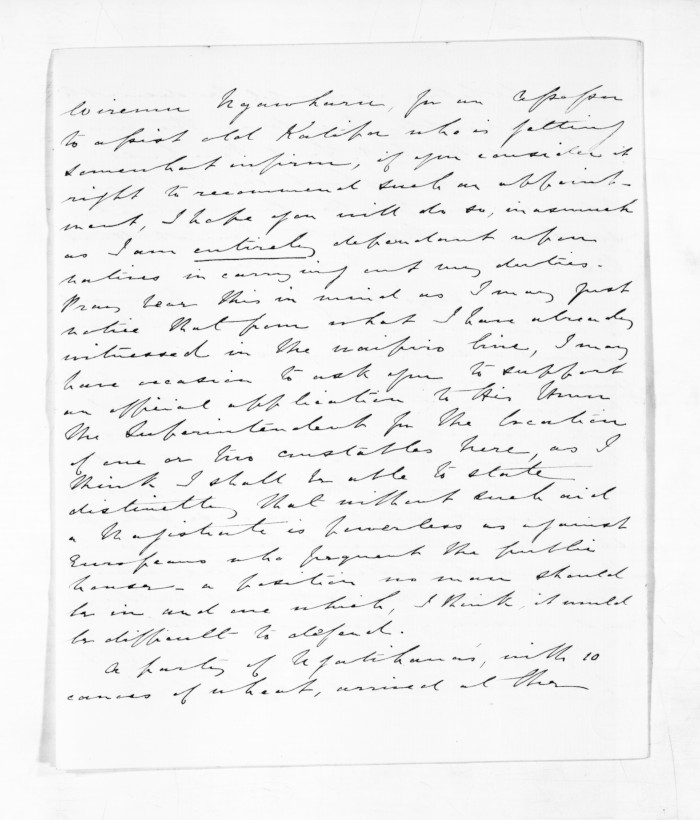 Wiremu Ngawharu, for an assessor
to assist old Katipa who is getting
somewhat infirm, if you consider it
right to recommend such an appoint-
ment, I hope you will do so, inasmuch
as I am entirely dependant upon
natives in carrying out my duties.
Pray bear this in mind as I may just
notice that from what I have already
witnessed in the waipiro line, I may
have occasion to ask you to support
an official application to His Honor
the Superintendent for the location
of one or two constables here, as I
think I shall be able to state
distinctly that without such aid
a Magistrate is powerless as against
Europeans who frequent the public
house - a position no man should
be in and one which, I think, it would
be difficult to defend.
A party of Ngatihauas, with 10
canoes of wheat, arrived at the